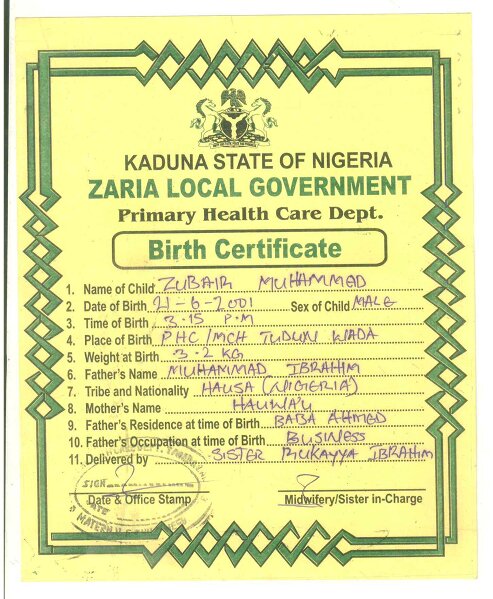 KADUNA STATE OF NIGERIA
ZARIA LOCAL GOVERNMENT
Primary Health Care Dept.
Birth Certificate
1. Name of Child ZUBAIR MUHAMMED
2. Date of Birth 21-6-2001 Sex of Child MALE
3. Time of Birth 3.15 P.M
4. Place of Birth PHC/MCH TUDUN WADA
5. Weight at Birth 3.2 KG
6. Father's Name MUHAMMAD IBRAHIM
7. Tribe and Nationality HAUSA (NIGERIA)
8. Mother's Name HAUWA'U
9. Father's Residence at time of Birth BABA AHMED
10. Father's Occupation at time of Birth BUSINESS
11. Delivered by SISTER RUKAYYA IBRAHIM
SIGN
DATE
Date & Office Stamp Midwifery/Sister in-Charge